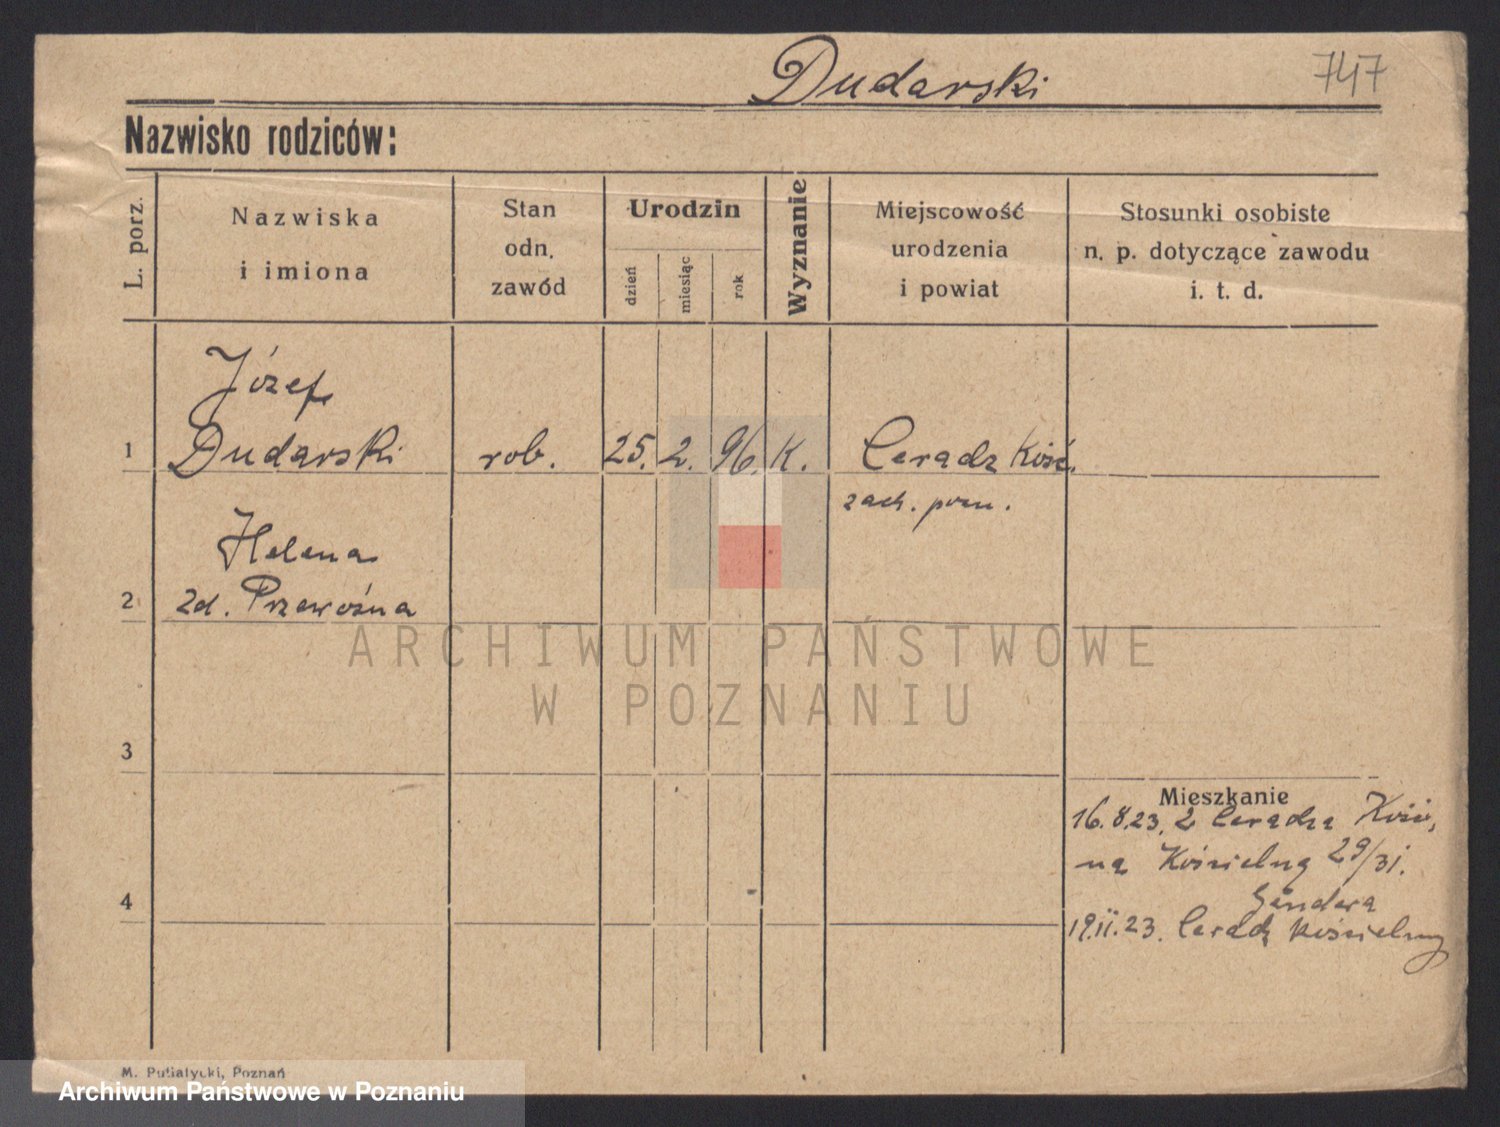 Dudarski
747
Nazwisko rodziców:
L. porz.
Nazwiska
i imiona
Stan
odn.
zawód
Urodzin
dzień
miesiąc
rok
Wyznanie
Miejscowość
urodzenia
i powiat
Stosunki osobiste
n. p. dotyczące zawodu
i. t. d.
Józef
1 Dudarski rob. 25. 2. 96. K. Ceradz Kość.
zach. pozn.
Helena
2 zd. Przewoźna
ARCHIWUM PAŃSTWOWE
W POZNANIU
3
Mieszkanie
16.8.23. z Ceradza Kość.
na Kościelną 29/31.
4
19.11.23. Ceradz Kościelny
M. Putiatycki, Poznań
Archiwum Państwowe w Poznaniu